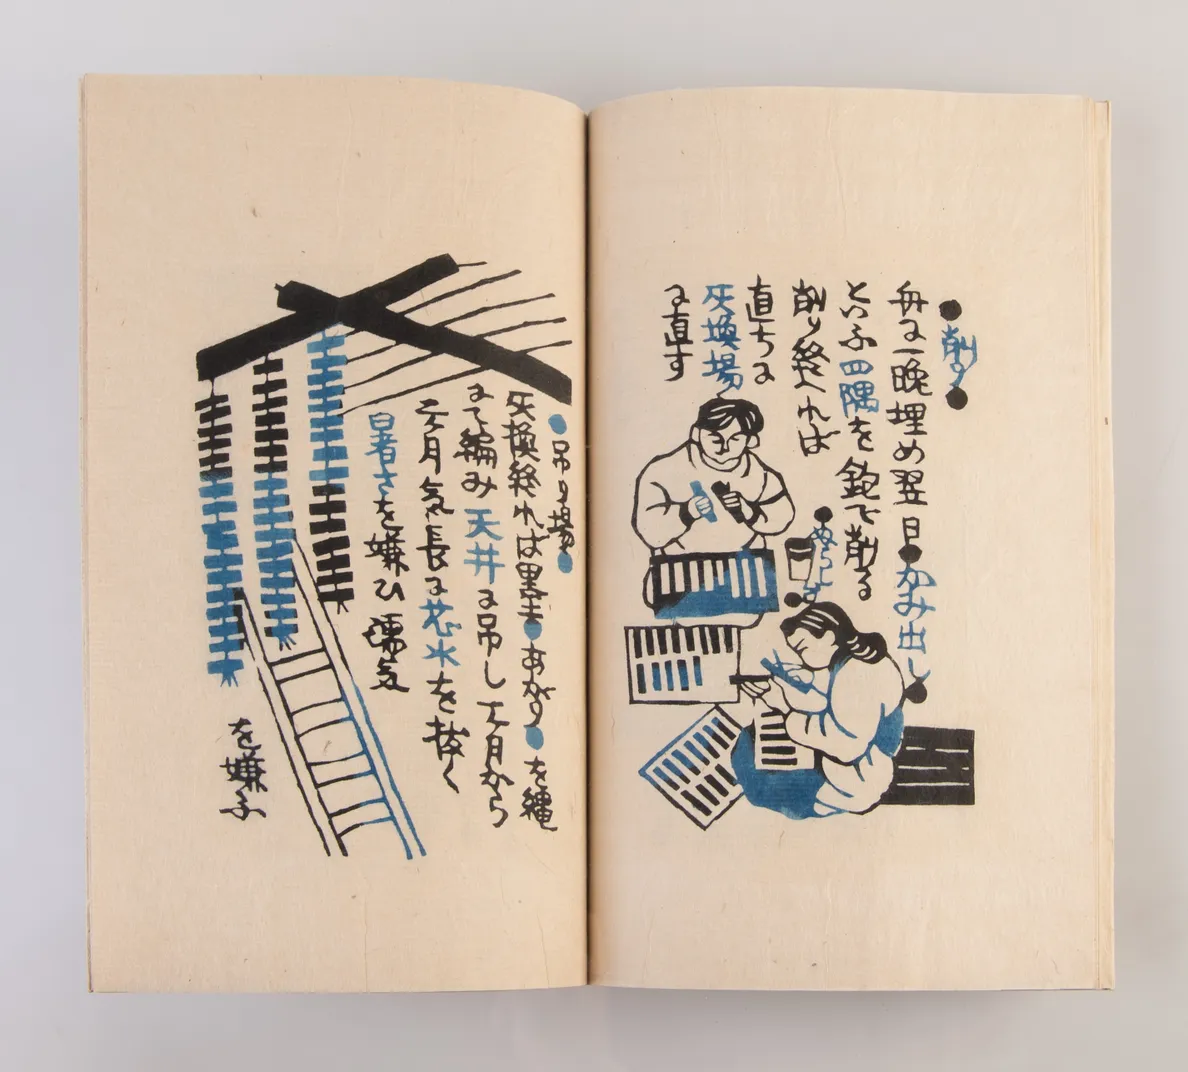 ●削り●
舟に一晩埋め翌日●かみ出し●
といふ四隅を鉋で削る
削り終へれば
直ちに
灰換場
に直す
●吊り場●
灰換終れば里言●あがり●を縄
まで編み天井に吊し 月から
月気長に芯水を抜く
暑さを嫌ひ濕気
を嫌ふ